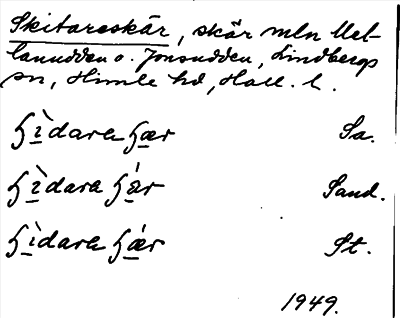 Skitareskär, skär mln Uet-
lanudden o. Jonsudden, Lindbergs
sn, Himle hd, Hall. l.
ʃìdara ʃær Sa.
ʃìdara ʃǽr Sand.
ʃìdara ʃǽr St.
1949.